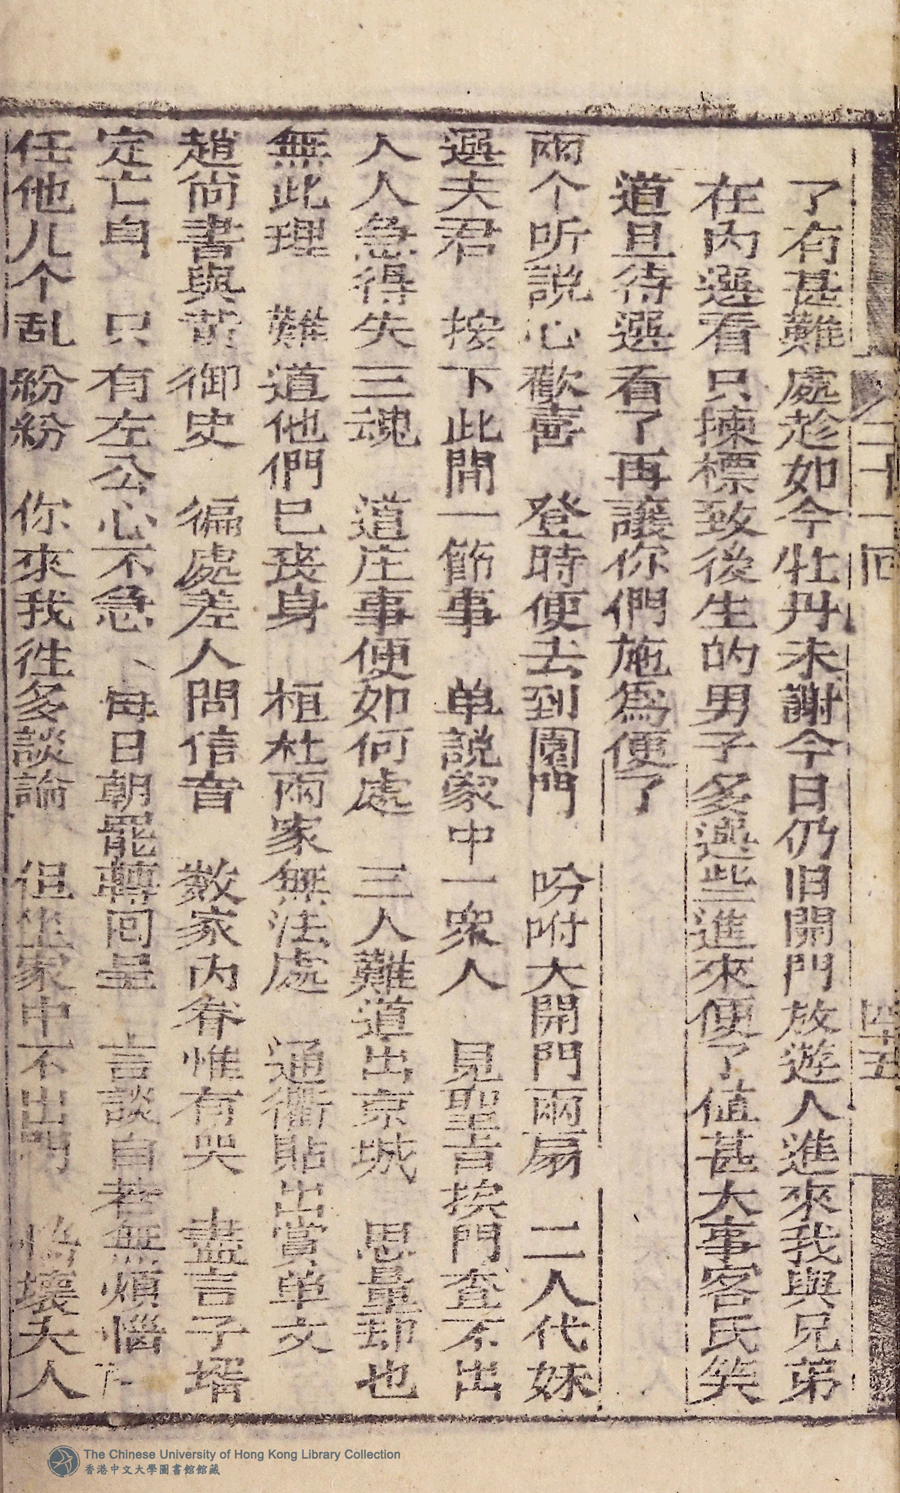 二十一回
四十五
了有甚難處趁如今牡丹未謝今日仍旧開門放遊人進來我與兄弟
在內選看只揀標致後生的男子多選些進來便了值甚大事客氏笑
道且待選看了再讓你們施為便了
兩个听說心歡喜 登時便去到園門 吩咐大開門兩扇 二人代妹
選夫君 按下此間一節事 单說家中一衆人 見聖旨挨門查不出
人人急得失三魂 道庄事便如何處 三人難道出京城 思量却也
無此理 難道他們已丧身 桓杜兩家無法處 通衢貼出賞单文
趙尚書與黄御史 徧處差人問信音 数家內眷惟有哭 盡言子壻
定亡身 只有左公心不急 每日朝罷轉囘呈 言談自若無煩惱
任他几个乱紛紛 你來我徃多談論 但坐家中不出門 恼壞夫人
The Chinese University of Hong Kong Library Collection
香港中文大學圖書館館藏